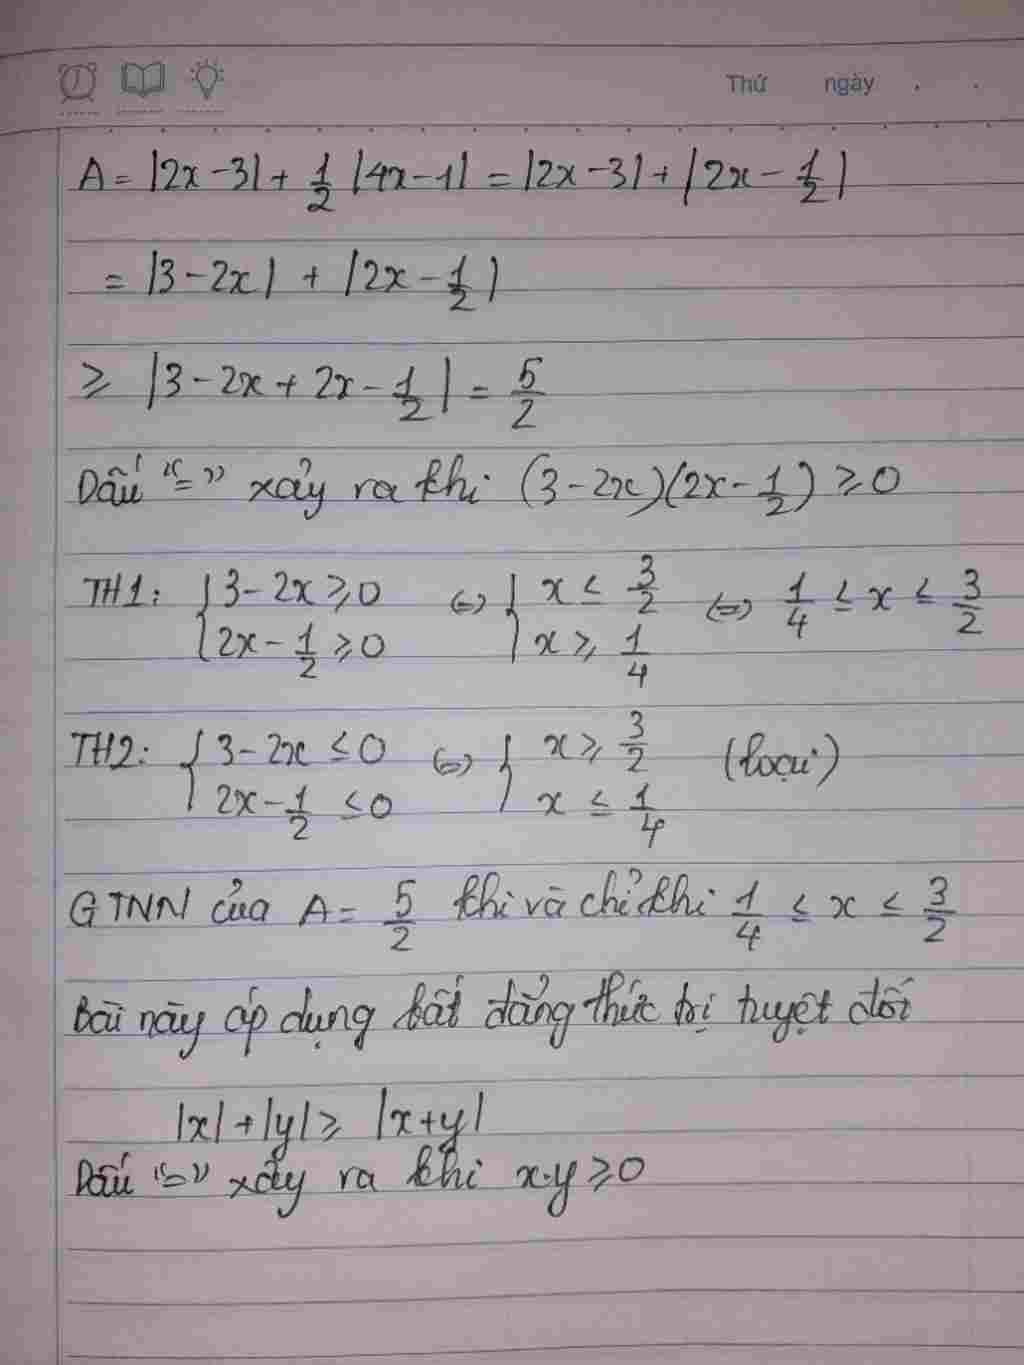 Thứ ngày . .
A = |2x - 3| + 1/2 |4x - 1| = |2x - 3| + |2x - 1/2|
= |3 - 2x| + |2x - 1/2|
≥ |3 - 2x + 2x - 1/2| = 5/2
Dấu "=" xảy ra khi (3 - 2x)(2x - 1/2) ≥ 0
TH1: { 3 - 2x ≥ 0 ⇔ { x ≤ 3/2 ⇔ 1/4 ≤ x ≤ 3/2
2x - 1/2 ≥ 0 x ≥ 1/4
TH2: { 3 - 2x ≤ 0 ⇔ { x ≥ 3/2 (loại)
2x - 1/2 ≤ 0 x ≤ 1/4
GTNN của A = 5/2 khi và chỉ khi 1/4 ≤ x ≤ 3/2
Bài này áp dụng bất đẳng thức trị tuyệt đối
|x| + |y| ≥ |x + y|
Dấu "=" xảy ra khi x.y ≥ 0